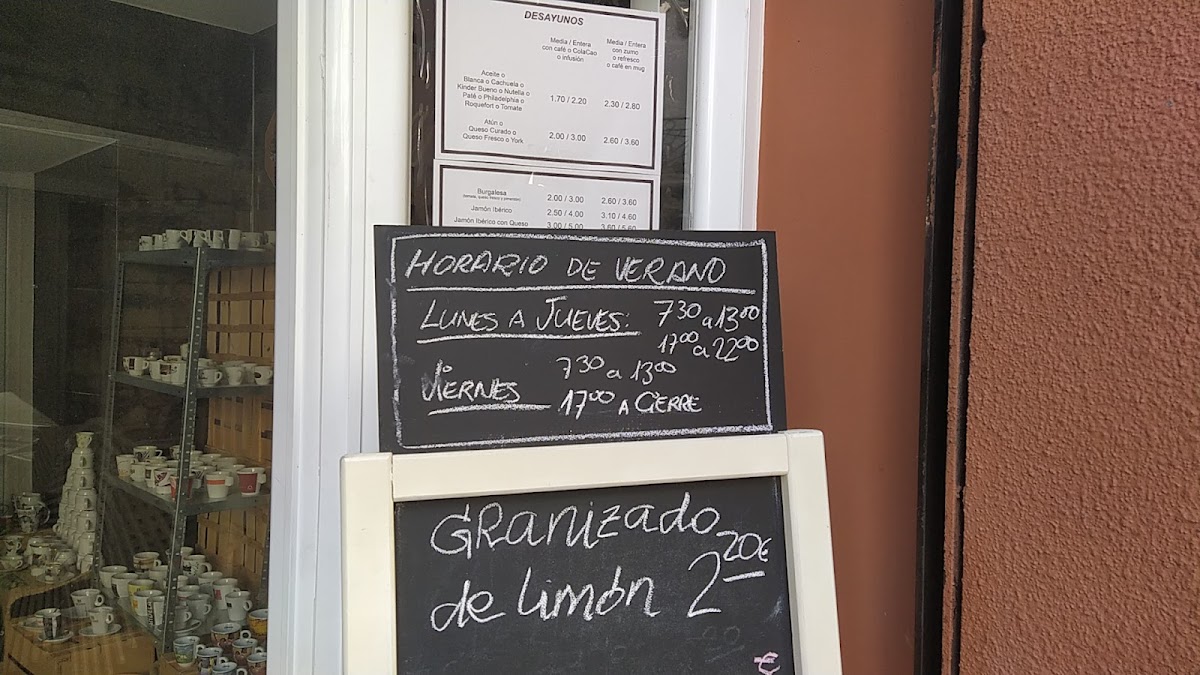 DESAYUNOS
Media / Entera
con café o ColaCao
o infusión
Media / Entera
con zumo
o refresco
o café en mug
Aceite o
Blanca o Cachuela o
Kinder Bueno o Nutella o
Paté o Philadelphia o
Roquefort o Tomate
1.70 / 2.20
2.30 / 2.80
Atún o
Queso Curado o
Queso Fresco o York
2.00 / 3.00
2.60 / 3.60
Burgalesa
2.00 / 3.00
2.60 / 3.60
Jamón Ibérico
2.50 / 4.00
3.10 / 4.60
Jamón Ibérico con Queso
3.00 / 5.00
3.60 / 5.60
HORARIO DE VERANO
LUNES A JUEVES: 7 30 a 13 00
17 00 a 22 00
VIERNES 7 30 a 13 00
17 00 A CIERRE
GRANIZADO
de limón 2 20€
€